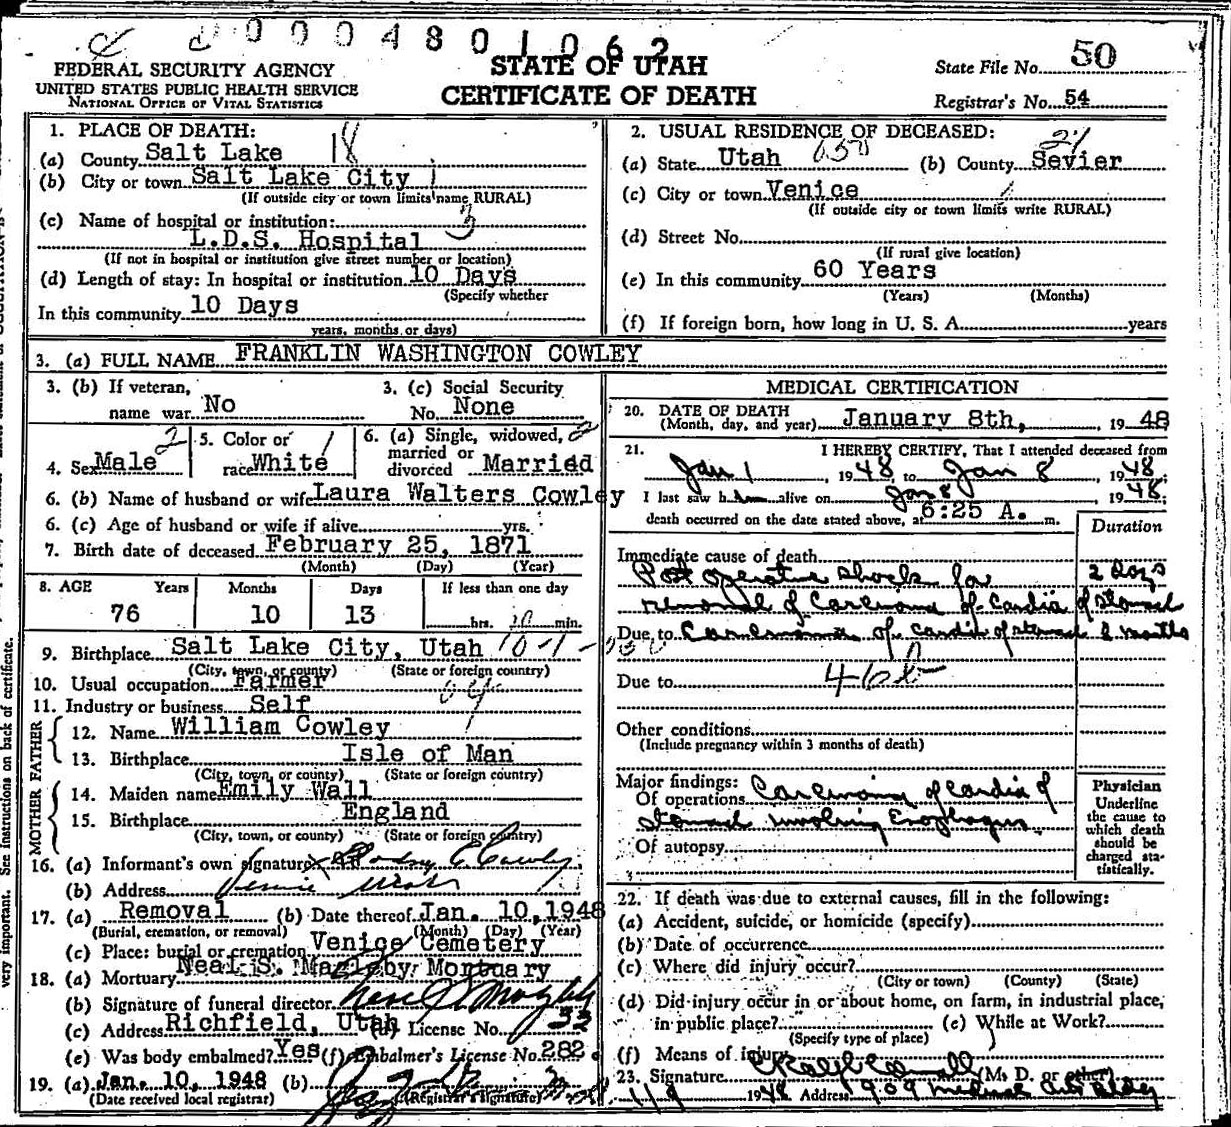 0 0 0 4 8 0 1 0 6 2
FEDERAL SECURITY AGENCY
UNITED STATES PUBLIC HEALTH SERVICE
NATIONAL OFFICE OF VITAL STATISTICS
STATE OF UTAH
CERTIFICATE OF DEATH
State File No. 50
Registrar's No. 54
1. PLACE OF DEATH: 18
(a) County Salt Lake
(b) City or town Salt Lake City 1
(If outside city or town limits name RURAL)
(c) Name of hospital or institution: 3
L.D.S. Hospital
(If not in hospital or institution give street number or location)
(d) Length of stay: In hospital or institution 10 Days
(Specify whether
In this community 10 Days
years, months or days)
2. USUAL RESIDENCE OF DECEASED: 21
(a) State Utah 050 (b) County Sevier
(c) City or town Venice
(If outside city or town limits write RURAL)
(d) Street No.
(If rural give location)
(e) In this community 60 Years
(Years) (Months)
(f) If foreign born, how long in U. S. A. years
3. (a) FULL NAME FRANKLIN WASHINGTON COWLEY
3. (b) If veteran, name war No
3. (c) Social Security No. None
4. Sex Male 2
5. Color or race White 1
6. (a) Single, widowed, married or divorced Married 2
6. (b) Name of husband or wife Laura Walters Cowley
6. (c) Age of husband or wife if alive yrs.
7. Birth date of deceased February 25, 1871
(Month) (Day) (Year)
8. AGE Years Months Days If less than one day
76 10 13 hrs. min.
9. Birthplace Salt Lake City, Utah
(City, town, or county) (State or foreign country)
10. Usual occupation Farmer
11. Industry or business Self
MOTHER FATHER
12. Name William Cowley
13. Birthplace Isle of Man
(City, town, or county) (State or foreign country)
14. Maiden name Emily Wall
15. Birthplace England
(City, town, or county) (State or foreign country)
16. (a) Informant's own signature Cowley
(b) Address Venice Utah
17. (a) Removal (b) Date thereof Jan. 10, 1948
(Burial, cremation, or removal) (Month) (Day) (Year)
(c) Place: burial or cremation Venice Cemetery
18. (a) Mortuary Neal S. Magleby Mortuary
(b) Signature of funeral director Neal S. Magleby
(c) Address Richfield, Utah (d) License No. 32
(e) Was body embalmed? Yes (f) Embalmer's License No. 282
19. (a) Jan. 10, 1948 (b)
(Date received local registrar) (Registrar's signature)
MEDICAL CERTIFICATION
20. DATE OF DEATH
(Month, day, and year) January 8th, 1948
21. I HEREBY CERTIFY, That I attended deceased from
Jan 1, 1948, to Jan 8, 1948.
I last saw him alive on Jan 8, 1948.
death occurred on the date stated above, at 6:25 A. m.
Duration
Immediate cause of death
Post operative shock for 2 days
removal of Carcinoma of cardia of stomach
Due to Carcinoma of cardia of stomach 2 months
Due to 46b
Other conditions
(Include pregnancy within 3 months of death)
Major findings:
Of operations Carcinoma of cardia of
stomach involving Esophagus
Of autopsy
Physician
Underline
the cause to
which death
should be
charged sta-
tistically.
22. If death was due to external causes, fill in the following:
(a) Accident, suicide, or homicide (specify)
(b) Date of occurrence
(c) Where did injury occur?
(City or town) (County) (State)
(d) Did injury occur in or about home, on farm, in industrial place,
in public place? (e) While at Work?
(Specify type of place)
(f) Means of injury
23. Signature (M. D. or other)
1/9 1948 Address 909 Medical Arts Bldg
very important. See instructions on back of certificate.